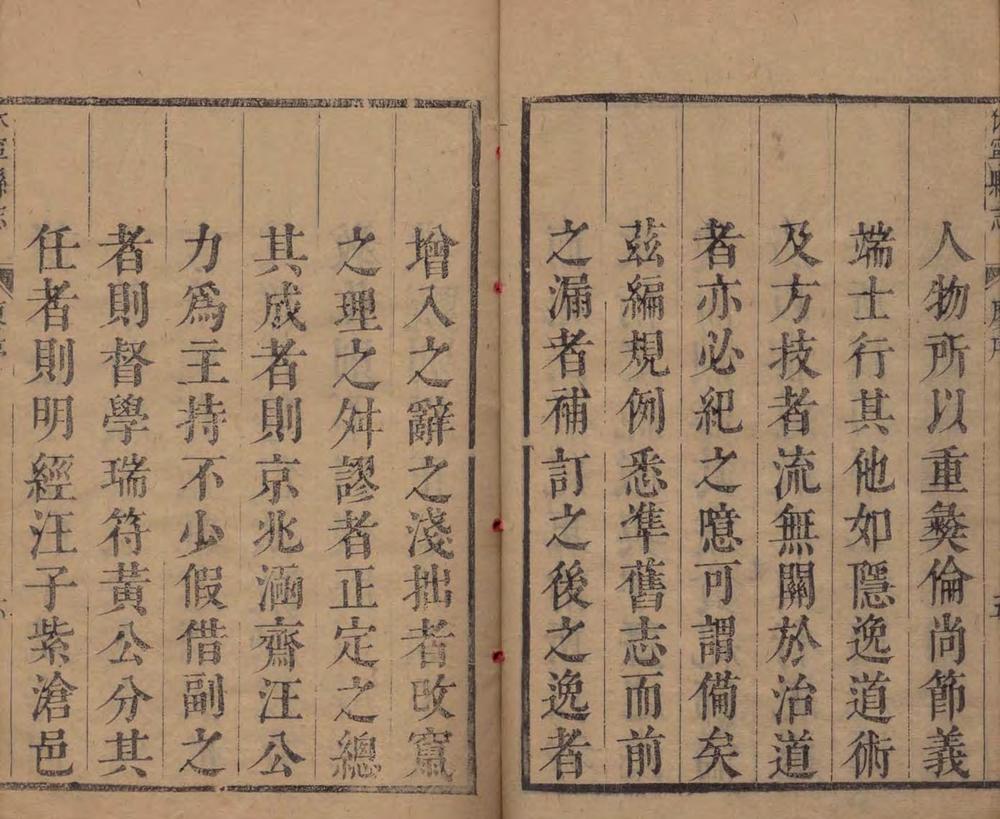 休寧縣志
人物所以重彜倫尚節義
端士行其他如隱逸道術
及方技者流無關於治道
者亦必紀之噫可謂備矣
玆編規例悉凖舊志而前
之漏者補訂之後之逸者
增入之辭之淺拙者攺竄
之理之舛謬者正定之總
其成者則京兆涵齋汪公
力爲主持不少假借副之
者則督學瑞符黃公分其
任者則明經汪子紫滄邑
休寧縣志